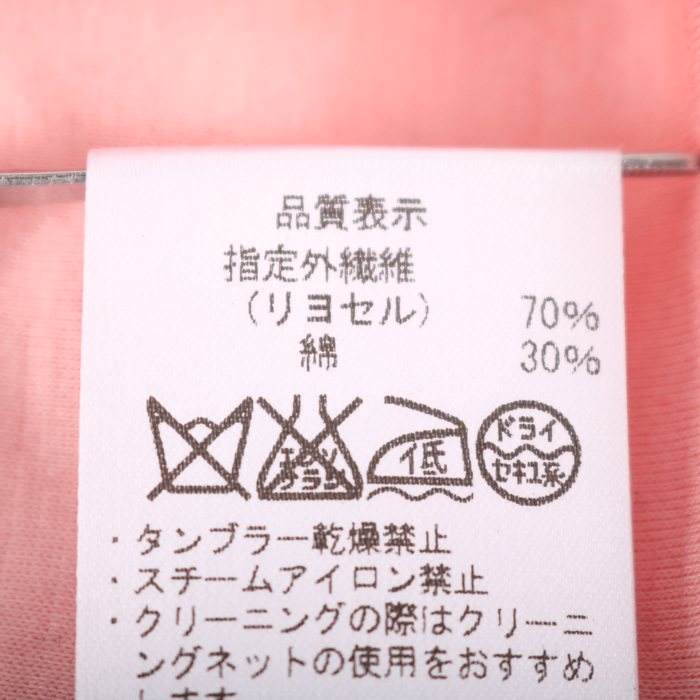 品質表示
指定外繊維
(リヨセル) 70%
綿 30%
エンソ
サラシ
低
ドライ
セキユ系
・タンブラー乾燥禁止
・スチームアイロン禁止
・クリーニングの際はクリーニ
ングネットの使用をおすすめ
します